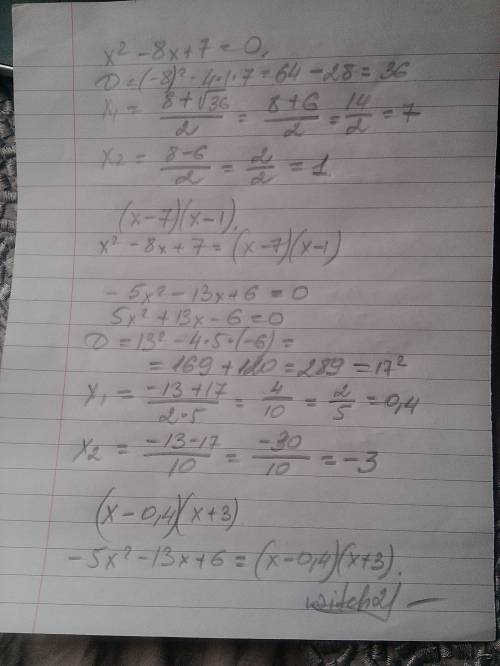 x² - 8x + 7 = 0,
D = (-8)² - 4·1·7 = 64 - 28 = 36
x₁ = (8 + √36)/2 = (8 + 6)/2 = 14/2 = 7
x₂ = (8 - 6)/2 = 2/2 = 1
(x - 7)(x - 1).
x² - 8x + 7 = (x - 7)(x - 1)
- 5x² - 13x + 6 = 0
5x² + 13x - 6 = 0
D = 13² - 4·5·(-6) =
= 169 + 120 = 289 = 17²
x₁ = (-13 + 17)/(2·5) = 4/10 = 2/5 = 0,4
x₂ = (-13 - 17)/10 = -30/10 = -3
(x - 0,4)(x + 3)
- 5x² - 13x + 6 = (x - 0,4)(x + 3).
witch21